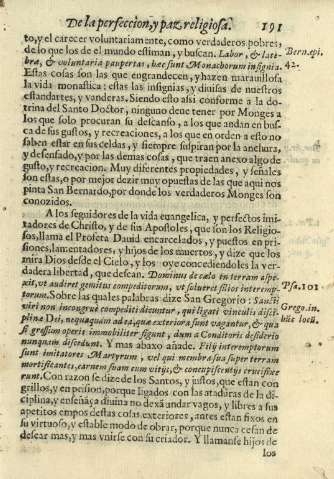 De la perfeccion, y paz religiosa. 191
to, y el carecer voluntariamente, como verdaderos pobres,
de lo que los de el mundo estiman, y buscan. Labor, & late- Bern. epi.
bræ, & voluntaria paupertas, hæc sunt Monachorum insignia. 42.
Estas cosas son las que engrandecen, y hazen marauillosa
la vida monastica: estas las insignias, y diuisas de nuestros
estandartes, y vanderas. Siendo esto assi conforme a la do-
trina del Santo Doctor, ninguno deue tener por Monges a
los que solo procuran su descanso, a los que andan en bus-
ca de sus gustos, y recreaciones, a los que en orden a esto no
saben estar en sus celdas, y siempre suspiran por la anchura,
y desenfado, y por las demas cosas, que traen anexo algo de
gusto, y recreacion. Muy diferentes propiedades, y señales
son estas, o por mejor dezir muy opuestas de las que aqui nos
pinta San Bernardo, por donde los verdaderos Monges son
conozidos.
A los seguidores de la vida euangelica, y perfectos imi-
tadores de Christo, y de sus Apostoles, que son los Religio-
sos, llama el Profeta Dauid encarcelados, y puestos en pri-
siones, lamentadores, y hijos de los muertos, y dize que los
mira Dios desde el Cielo, y los oye concediendoles la ver-
dadera libertad, que desean. Dominus de cælo in terram aspe- Psa. 101
xit, vt audiret gemitus compeditorum, vt solueret filios interemp-
torum. Sobre las quales palabras dize San Gregorio: Sancti Grego. in
viri non incongruè compediti dicuntur, qui ligati vinculis disci- hūc locū.
plina Dei, nequaquam ad ea, quæ exteriora sunt vagantur, & qua
si gressum operis immobiliter figunt, dum a Conditoris desiderio
nunquam discedunt. Y mas abaxo añade. Filij interemptorum
sunt imitatores Martyrum, vel qui membra sua super terram
mortificantes, carnem suam cum vitijs, & concupiscentijs crucifixe
runt. Con razon se dize de los Santos, y justos, que estan con
grillos, y en prision, porque ligados con las ataduras de la di-
ciplina, y enseñāça diuina no dexā andar vagos, y libres a sus
apetitos empos destas cosas exteriores, antes estan fixos en
su virtuoso, y estable modo de obrar, porque nunca cesan de
desear mas, y mas vnirse con su criador. Y llamanse hijos de
los